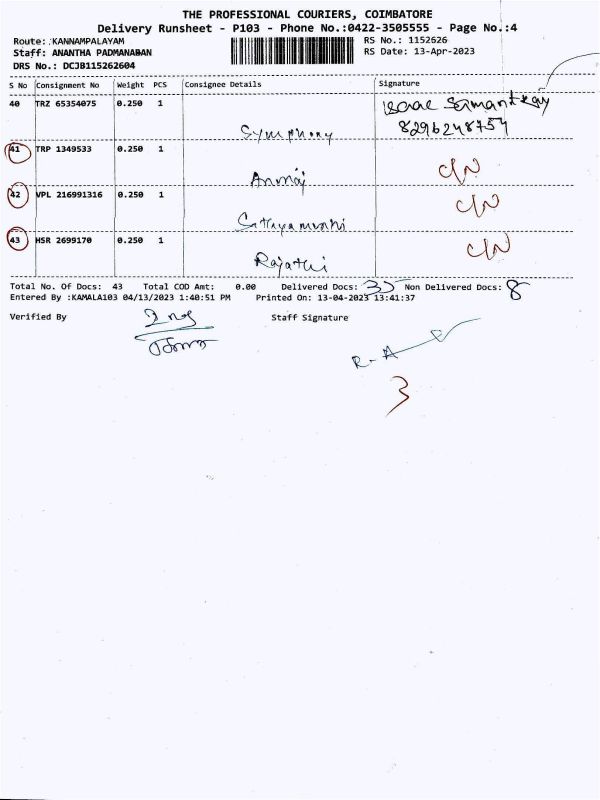 THE PROFESSIONAL COURIERS, COIMBATORE
Delivery Runsheet - P103 - Phone No.:0422-3505555 - Page No.:4
Route: KANNAMPALAYAM
RS No.: 1152626
Staff: ANANTHA PADMANABAN
RS Date: 13-Apr-2023
DRS No.: DCJB115262604
S No Consignment No Weight PCS Consignee Details Signature
40 TRZ 65354075 0.250 1
8296248754
Symphony
41 TRP 1349533 0.250 1
42 VPL 216991316 0.250 1
43 HSR 2699170 0.250 1
Total No. Of Docs: 43 Total COD Amt: 0.00 Delivered Docs: 35 Non Delivered Docs: 8
Entered By :KAMALA103 04/13/2023 1:40:51 PM Printed On: 13-04-2023 13:41:37
Verified By Staff Signature
R-A
3